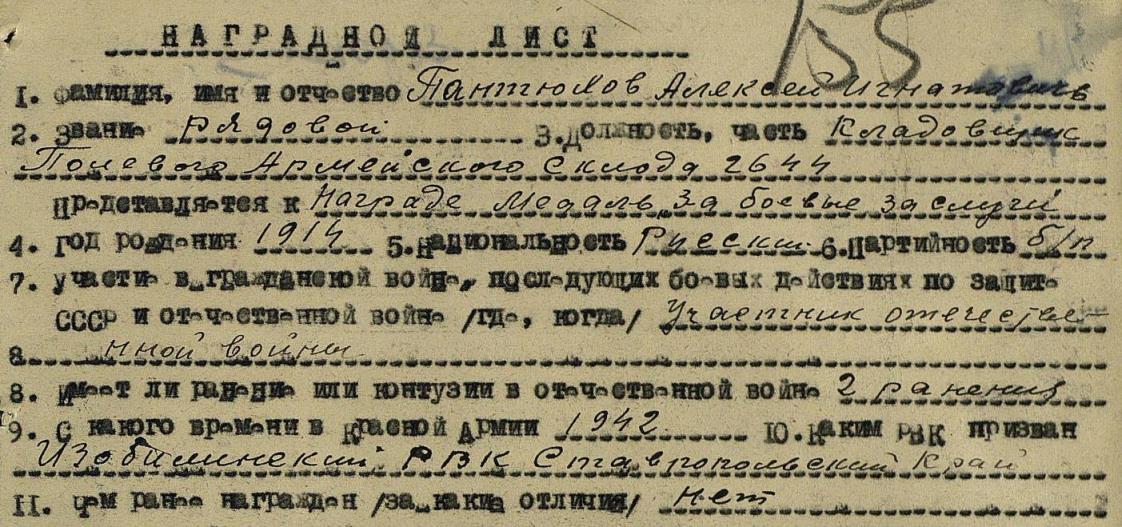 155
НАГРАДНОЙ ЛИСТ
I. Фамилия, имя и отчество Пантюхов Алексей Игнатович
2. Звание рядовой 3. Должность, часть Кладовщик
Полевого Армейского Склада 2644
Представляется к Награде Медаль "За боевые заслуги"
4. Год рождения 1914 5. Национальность Русский 6. Партийность б/п
7. Участие в гражданской войне, последующих боевых действиях по защите
СССР и отечественной войне /где, когда/ Участник отечестве-
8. нной войны
8. Имеет ли ранение или контузии в отечественной войне 2 ранения
9. С какого времени в Красной Армии 1942 IО. Каким РВК призван
Изобилинский РВК Ставропольский Край
II. Чем ранее награжден /за какие отличия/ нет